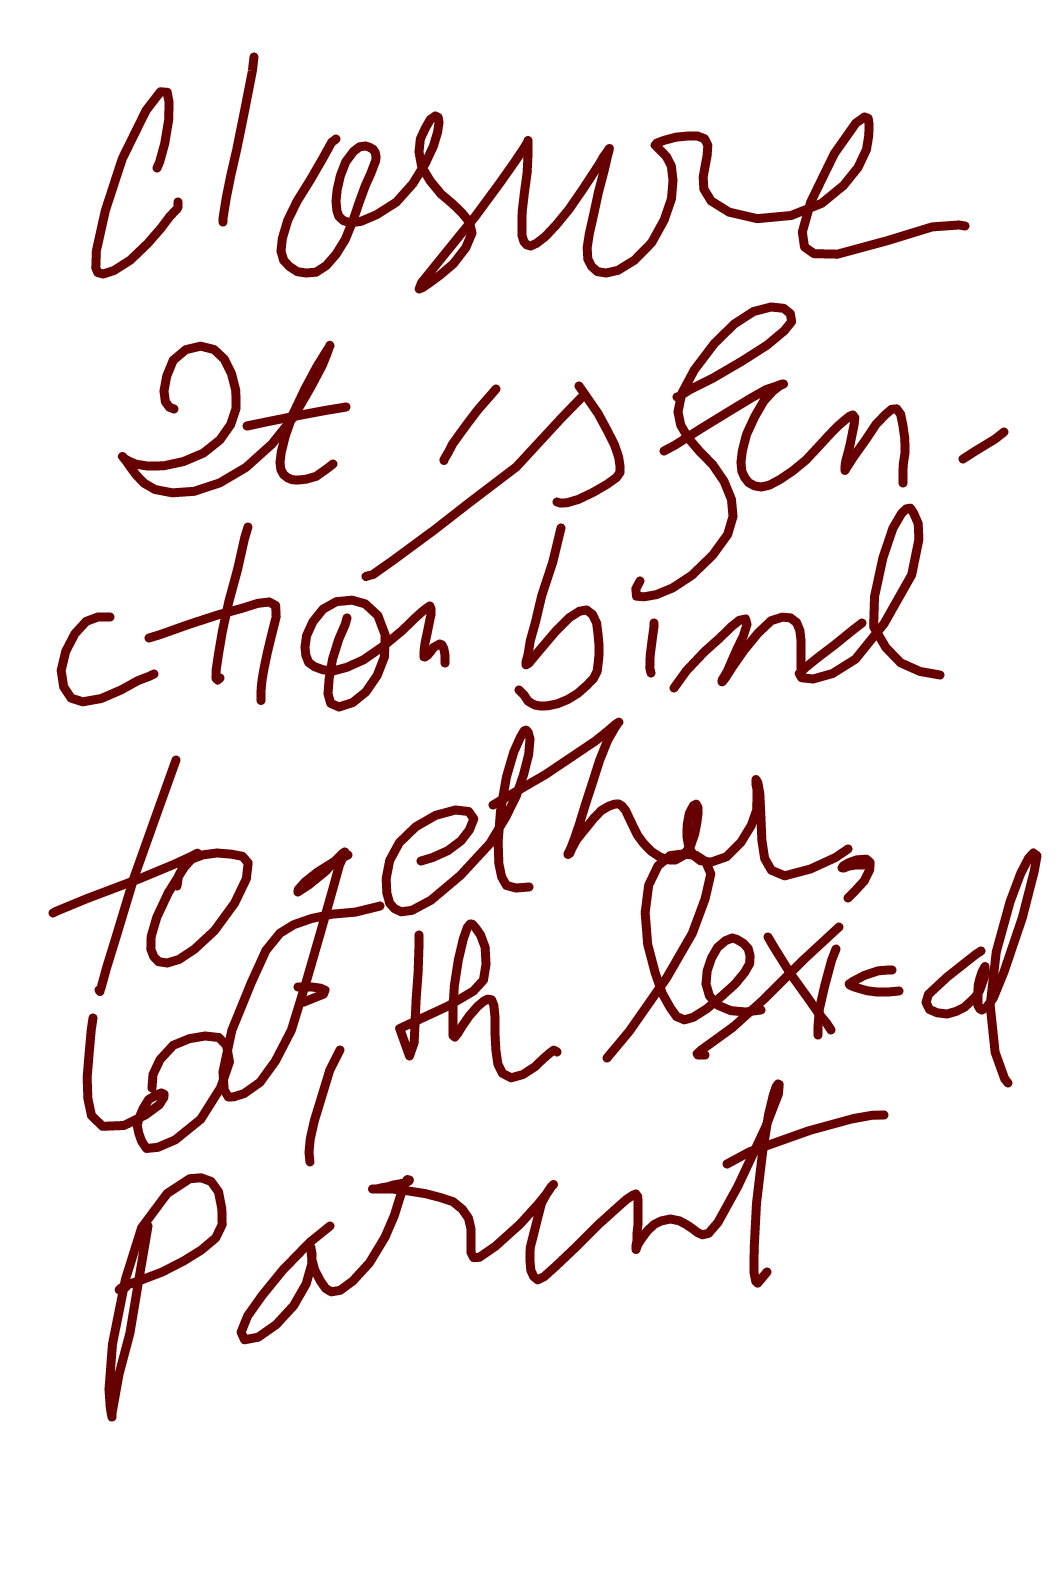 Closure
It is fun-
ction bind
together,
with lexical
parent